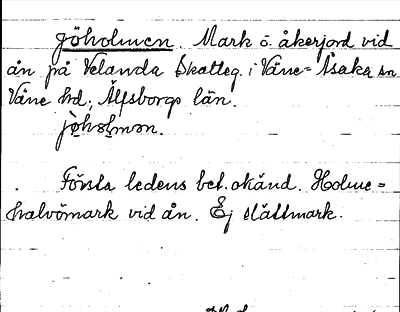 Jöholmen. Mark o. åkerjord vid
ån på Velanda Skatteg. i Väne-Åsaka sn
Väne hd, Älfsborgs län.
jöholmən.
Första ledens bet. okänd. Holme =
halvömark vid ån. Ej slåttmark.